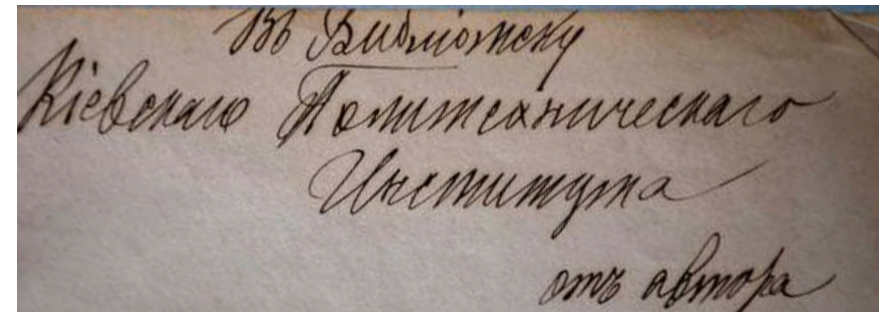 Въ Библіотеку
Кіевскаго Политехническаго
Института
отъ автора